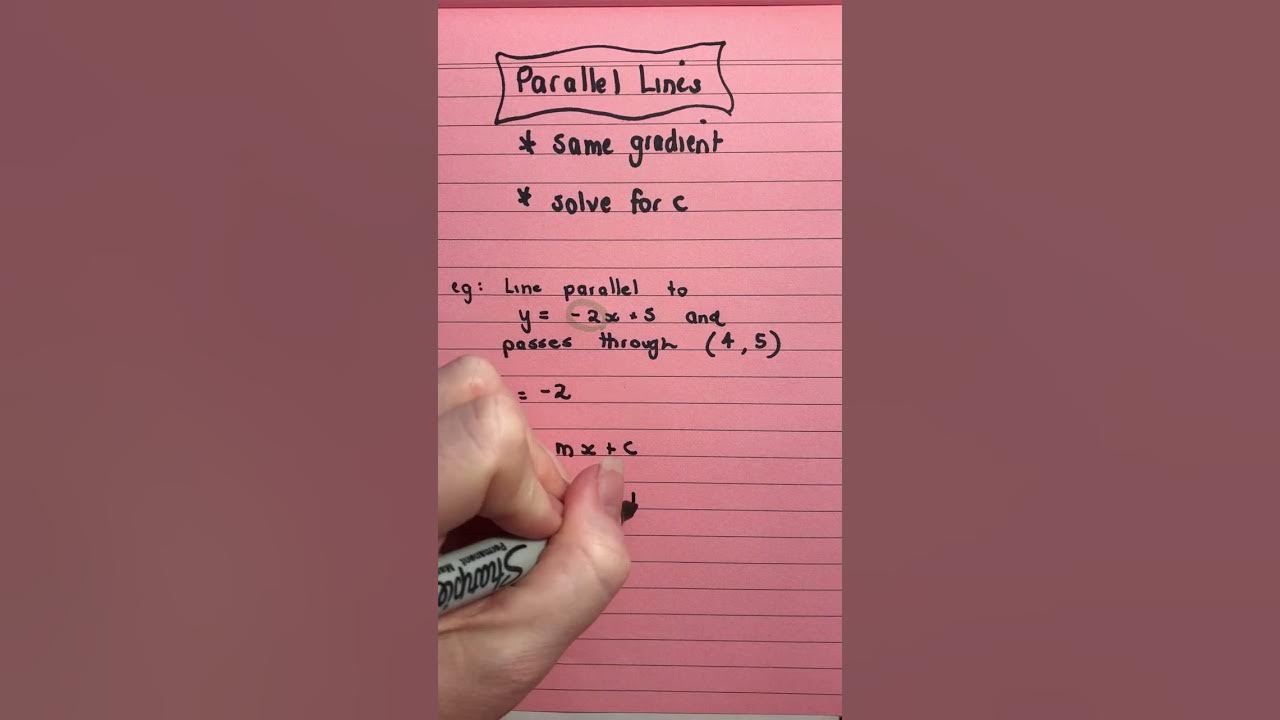 Parallel Lines
* same gradient
* solve for c
eg: Line parallel to
y = -2x + 5 and
passes through (4, 5)
= -2
mx + c
Sharpie
Permanent